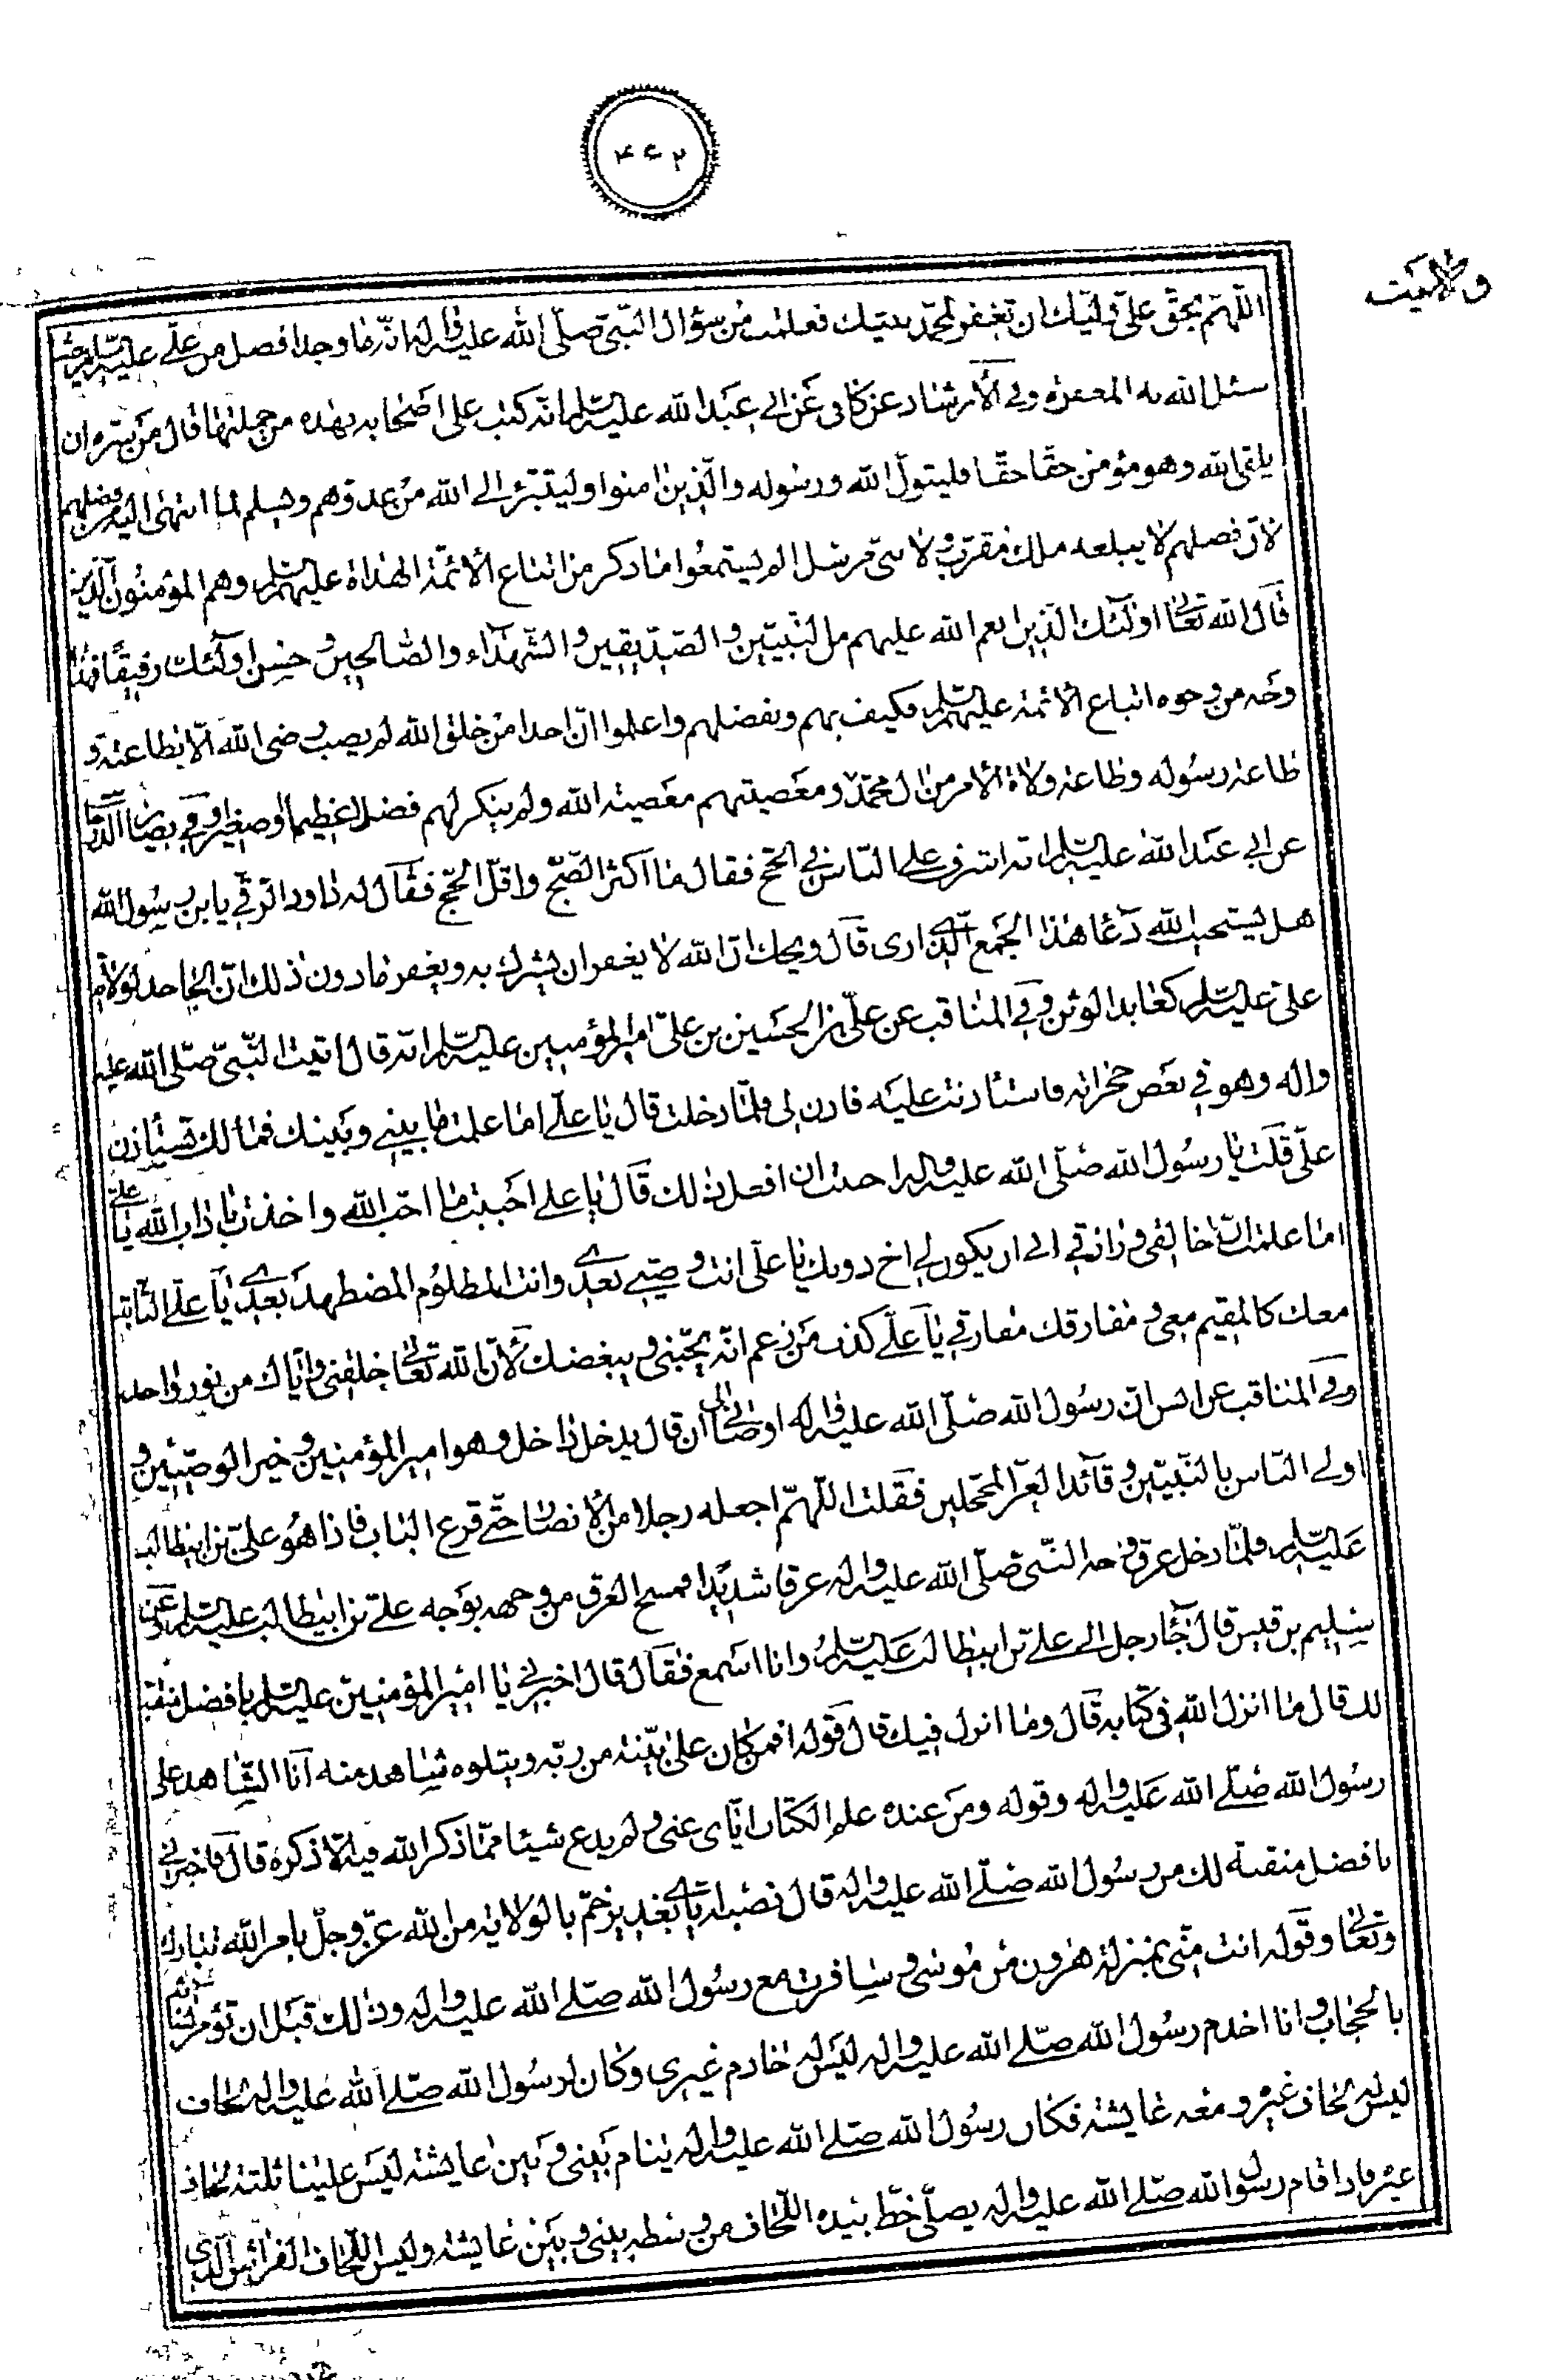 ٤٦٢
ولايت
اللّهمّ بحقّ علىّ وليّك ان تغفر لمحمّد نبيّك فعلمت من سؤال النّبىّ صلّى الله عليه واله انّه ما وجد افضل من علىّ عليه السّلم حتّى
سئل الله به المغفرة وفى الأرشاد عن كافى عن ابى عبد الله عليه السّلم انّه كتب على اصحابه بهذه من جملتها قال من سرّه ان
يلقى الله وهو مؤمن حقّا حقّا فليتولّ الله ورسوله والّذين امنوا وليتبرّء الى الله من عدوّهم ويسلم لما انتهى اليه من فضلهم
لانّ فضلهم لا يبلغه ملك مقرّب ولا نبىّ مرسل الم يستمعوا ما ذكر من اتباع الأئمّة الهداة عليهم السّلم وهم المؤمنون الّذين
قال الله تعالى اولئك الّذين انعم الله عليهم من النّبيّين والصّدّيقين والشّهداء والصّالحين وحسن اولئك رفيقًا فهذا
وجه من وجوه اتباع الأئمّة عليهم السّلم فكيف بهم وبفضلهم واعلموا انّ احدا من خلق الله لم يصب رضى الله الّا بطاعته و
طاعة رسوله وطاعة ولاة الأمر من ال محمّد ومعصيتهم معصية الله ولم ينكر لهم فضل اعظيما او صغيرا وفى بصائر الدّرجات
عن ابى عبد الله عليه السّلم انّه اشرف على النّاس فى الحجّ فقال ما اكثر الضّجّ واقلّ الحجّ فقال له داود الرّقى يابن رسول الله
هل يستجيب الله دعا هذا الجمع الّذى ارى قال ويحك انّ الله لا يغفر ان يشرك به ويغفر ما دون ذلك انّ الجاحد لولاية
علىّ عليه السّلم كعابد الوثن وفى المناقب عن علىّ بن الحسين بن علىّ امير المؤمنين عليه السّلم انّه قال اتيت النّبىّ صلّى الله عليه
واله وهو فى بعض حجراته فاستأذنت عليه فاذن لى فلمّا دخلت قال يا علىّ اما علمت ما بينى وبينك فما لك تستأذن
علىّ قلت يا رسول الله صلّى الله عليه واله احببت ان افعل ذلك قال يا على احببت ما احبّ الله واخذت باداب الله يا علىّ
اما علمت انّ خالقى ورازقى ابى ان يكون لى اخ دونك يا علىّ انت وصيّى بعدى وانت المظلوم المضطهد بعدى يا علىّ الثّابت
معك كالمقيم معى ومفارقك مفارقى يا علىّ كذب من زعم انّه يحبّنى ويبغضك لأنّ الله تعالى خلقنى وايّاك من نور واحد
وفى المناقب عن انس انّ رسول الله صلّى الله عليه واله اوصانى الى ان قال يدخل داخل وهو امير المؤمنين وخير الوصيّين و
اولى النّاس بالنّبيّين وقائد الغرّ المحجّلين فقلت اللّهمّ اجعله رجلا من الأنصار حتّى قرع الباب فاذا هو علىّ بن ابيطالب
عليه السّلم فلمّا دخل عرق وجه النّبىّ صلّى الله عليه واله عرقا شديدا فمسح العرق من وجهه بوجه علىّ بن ابيطالب عليه السّلم وعن
سليم بن قيس قال جاء رجل الى علىّ بن ابيطالب عليه السّلم وانا اسمع فقال قال اخبرنى يا امير المؤمنين عليه السّلم بافضل منقبة
لك قال ما انزل الله فى كتابه قال وما انزل فيك قال قوله افمن كان على بيّنة من ربّه ويتلوه شاهد منه انا الشّاهد على
رسول الله صلّى الله عليه واله وقوله ومن عنده علم الكتاب ايّاى عنى ولم يدع شيئا ممّا ذكر الله فيه الّا ذكره قال فاخبرنى
بافضل منقبة لك من رسول الله صلّى الله عليه واله قال نصبه ايّاى بغدير خمّ بالولاية من الله عزّ وجلّ بامر الله تبارك
وتعالى وقوله انت منّى بمنزلة هرون من موسى وسافرت مع رسول الله صلّى الله عليه واله وذلك قبل ان تؤمر
بالحجاب وانا اخدم رسول الله صلّى الله عليه واله ليس له خادم غيرى وكان لرسول الله صلّى الله عليه واله لحاف
ليس له لحاف غيره ومعه عايشة فكان رسول الله صلّى الله عليه واله ينام بينى وبين عايشة ليس علينا ثلثة لحاف
غيره فاذا قام رسول الله صلّى الله عليه واله يصلّى خطّ بيده اللّحاف من وسطه بينى وبين عايشة وليس اللّحاف الفراش الّذى